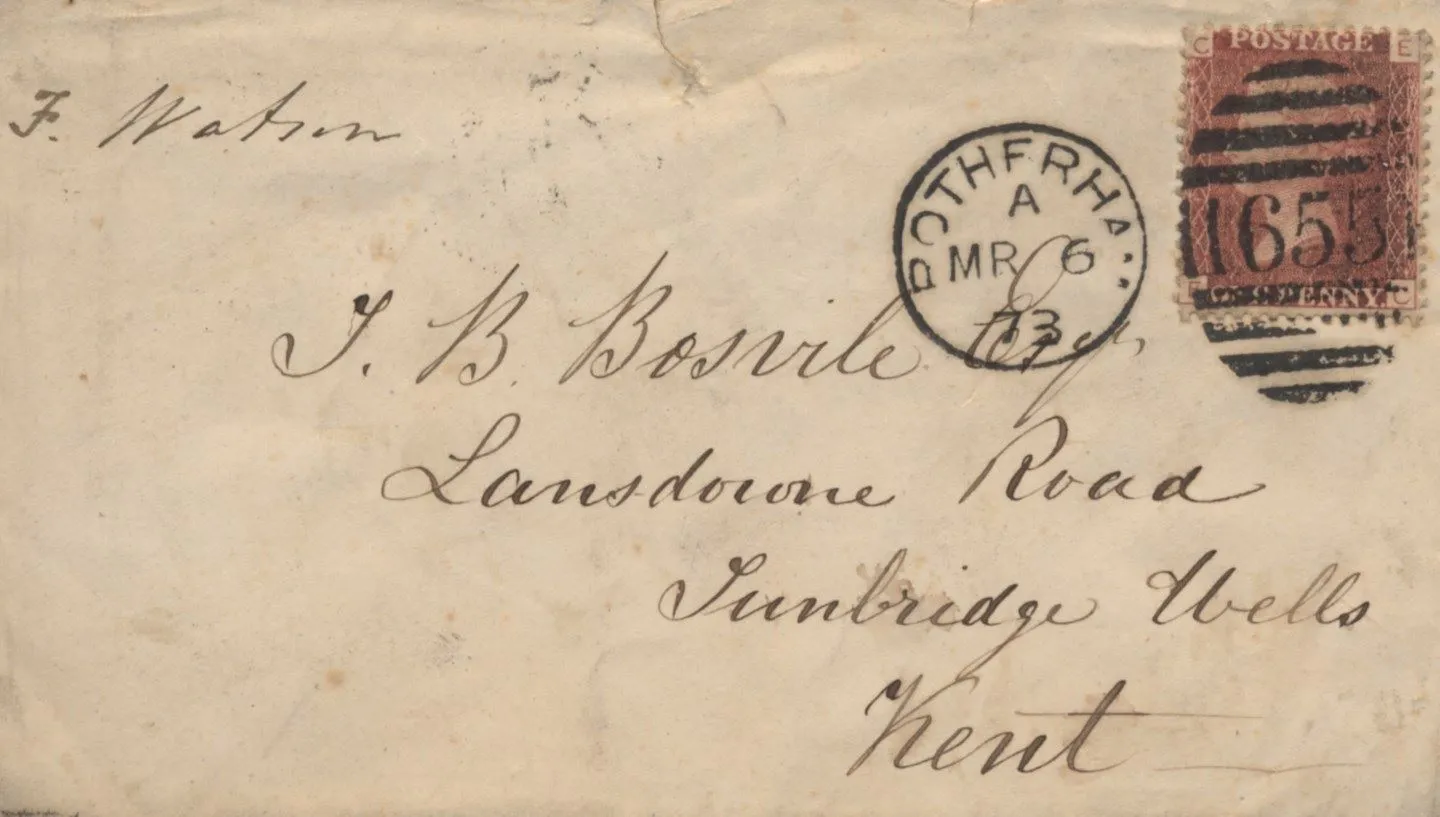 F. Watson
C POSTAGE E
ROTHERHAM
A
MR 6
73
655
PENNY. C
T. B. Bosvile Esqr
Lansdowne Road
Tunbridge Wells
Kent